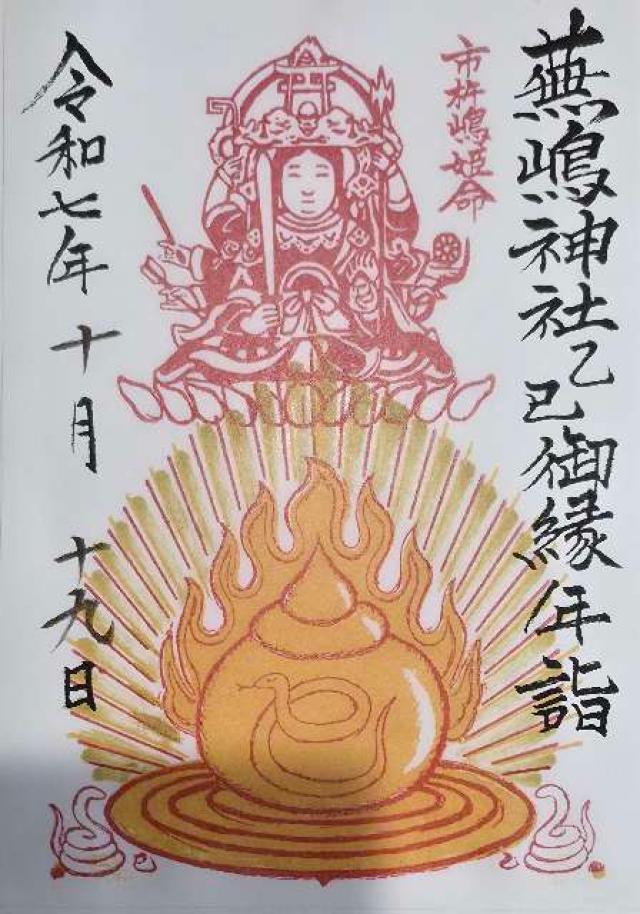 蕪嶋神社乙巳御縁年詣
市杵嶋姫命
令和七年十月十九日